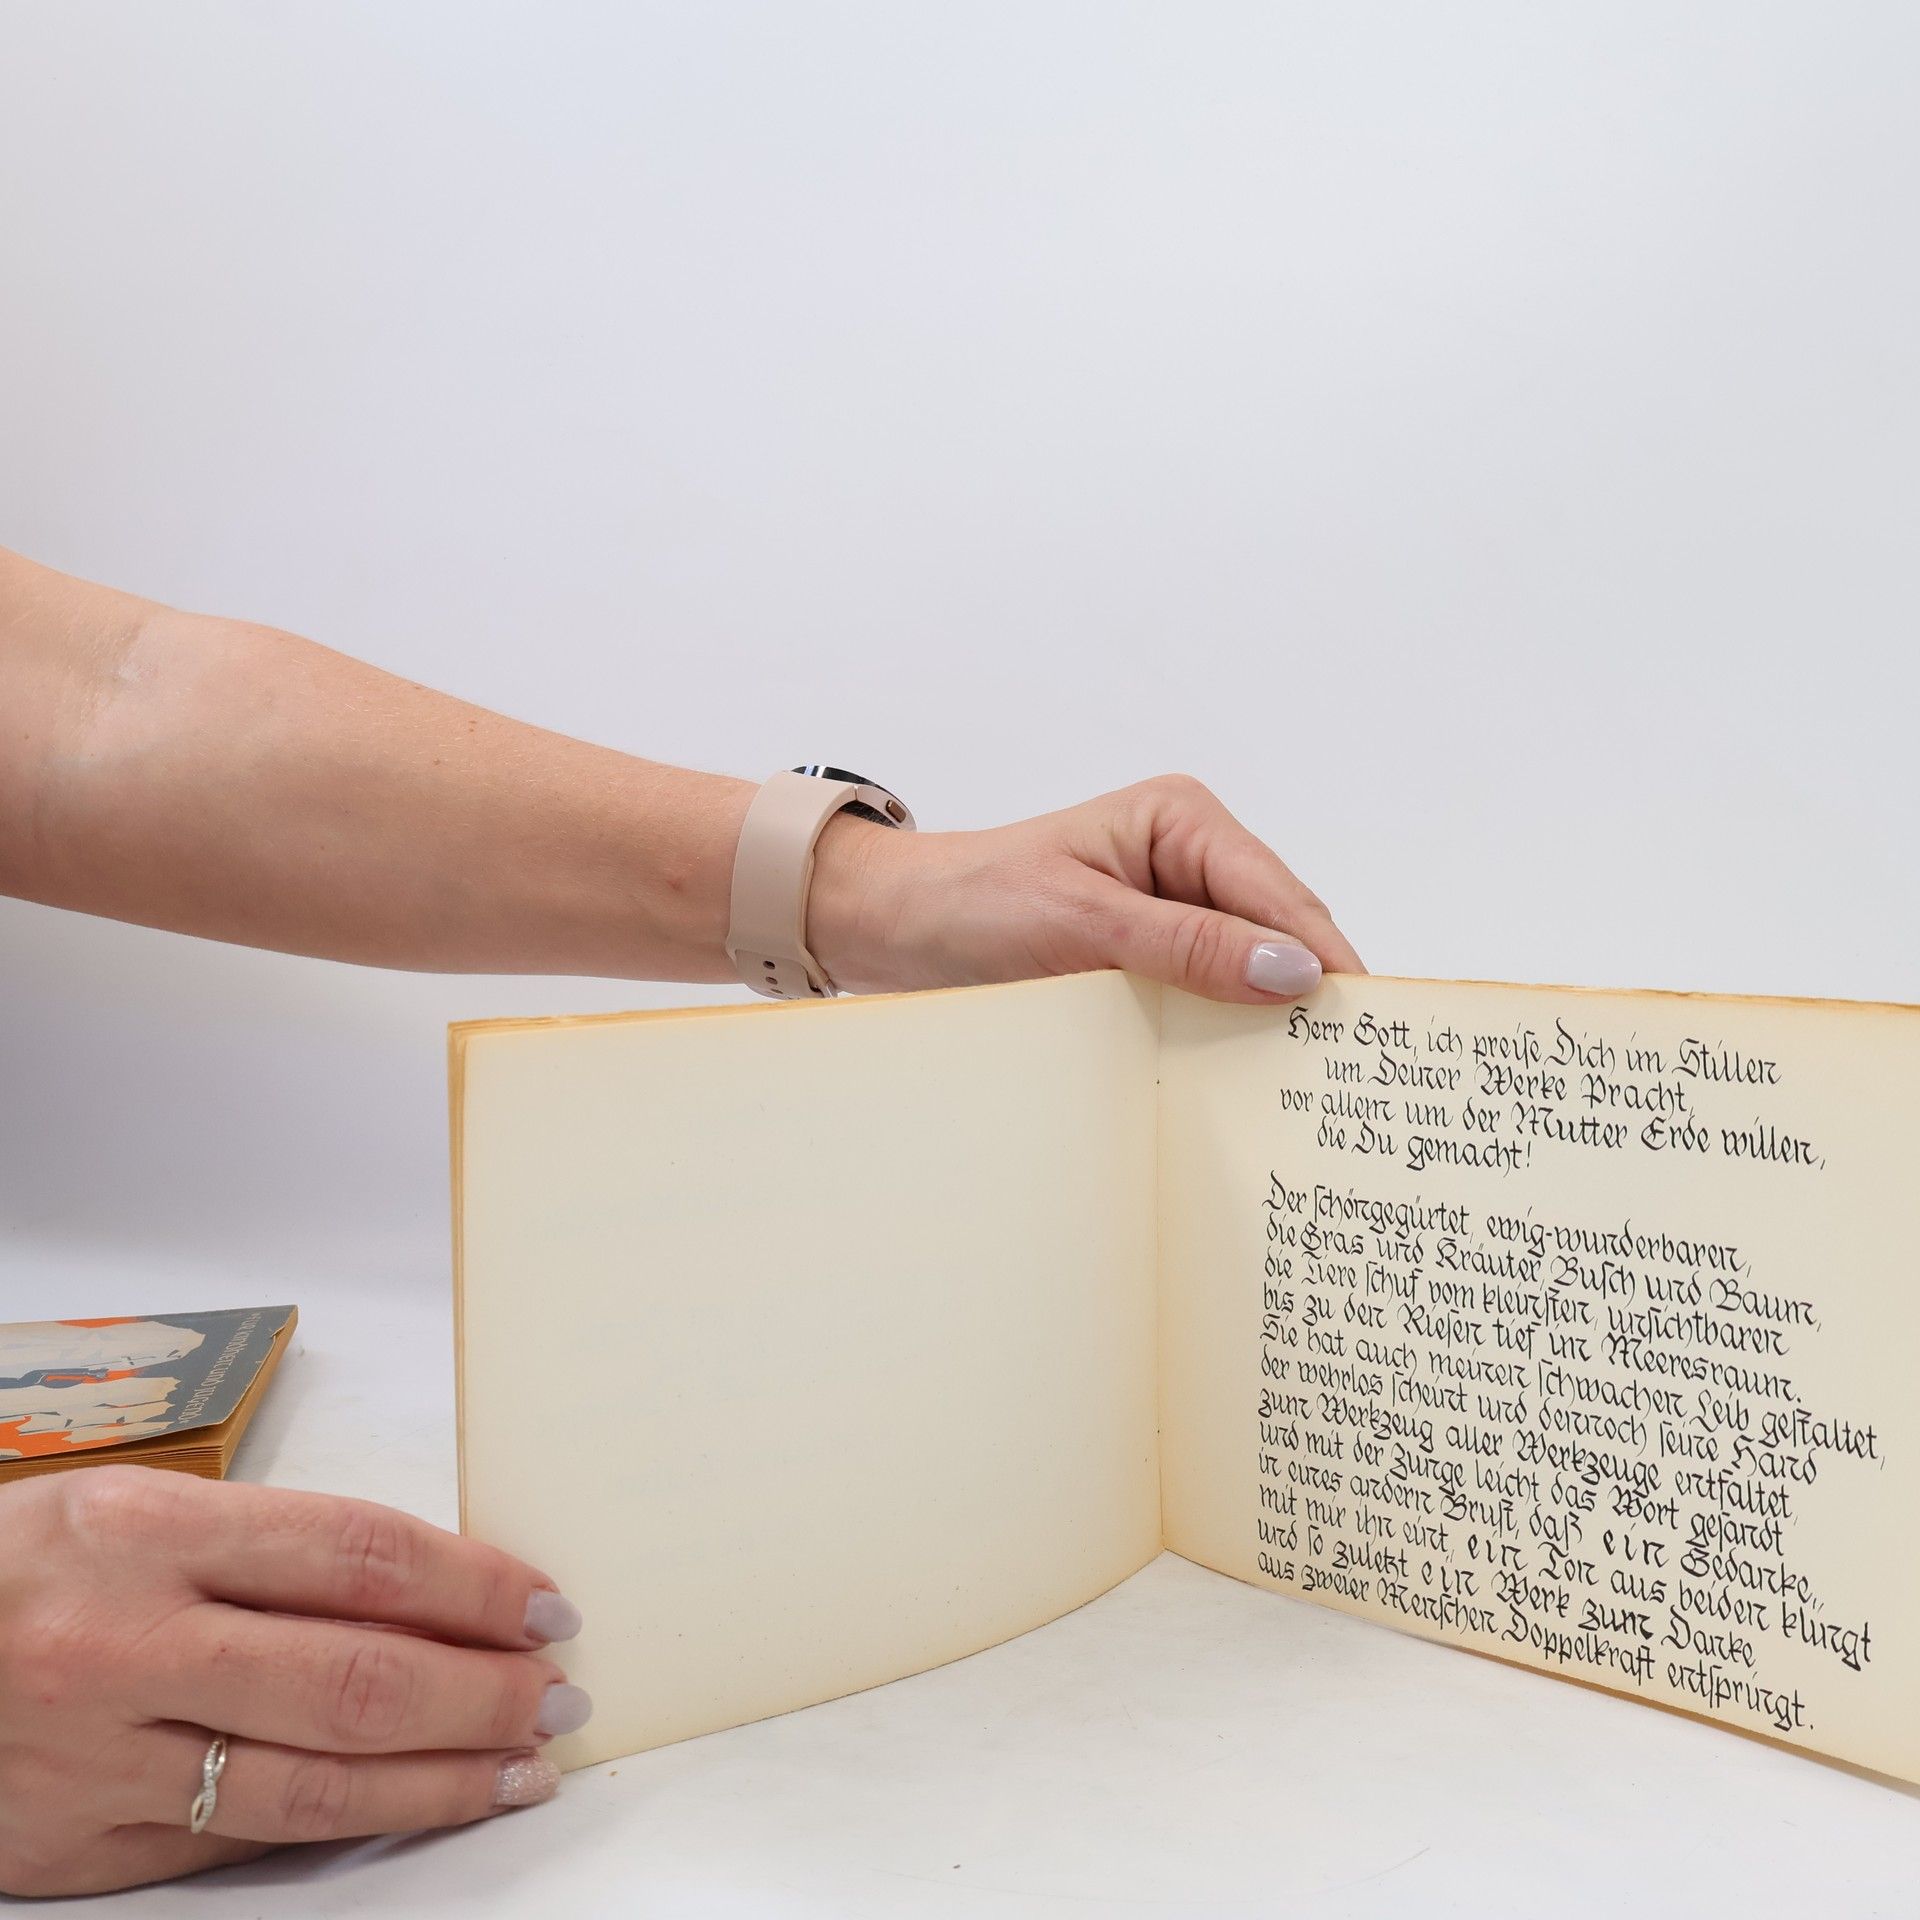 Herr Gott, ich preise Dich im Stillen
um Deiner Werke Pracht,
vor allem um der Mutter Erde willen,
die Du gemacht!
Der schöngegürtet, ewig-wunderbaren,
die Gras und Kräuter, Busch und Baum,
die Tiere schuf vom kleinsten, unsichtbaren
bis zu den Riesen tief im Meeresraum.
Sie hat auch meinen schwachen Leib gestaltet,
der wehrlos scheint und dennoch seine Hand
zum Werkzeug aller Werkzeuge entfaltet,
und mit der Zunge leicht das Wort gesandt
in eines andern Brust, daß ein Gedanke,
mit mir ihn eint, ein Ton aus beiden klingt
und so zuletzt ein Werk zum Danke
aus zweier Menschen Doppelkraft entspringt.
und Jugend